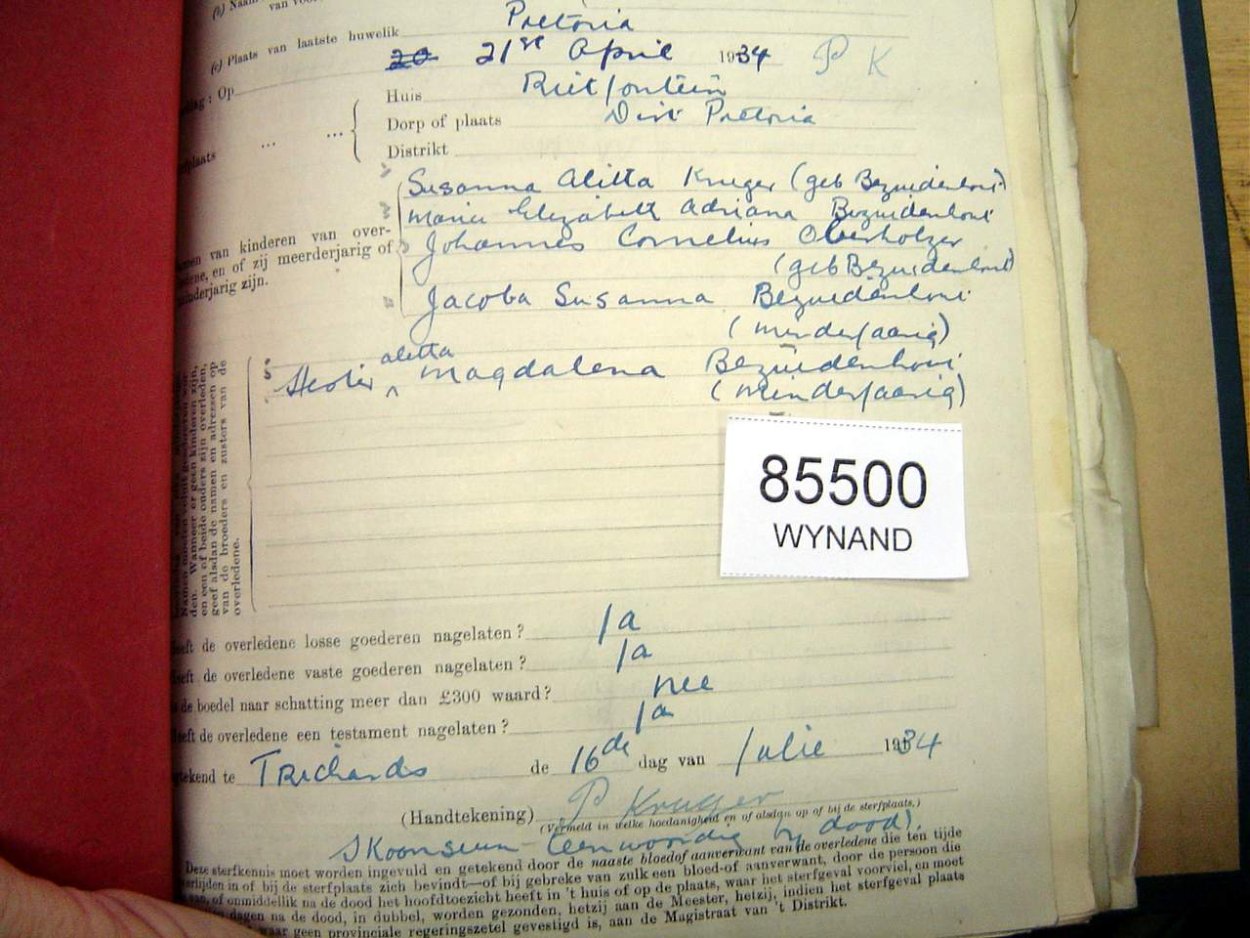 (b) Naam
van
Pretoria
(c) Plaats van laatste huwelik
20 21st April 1934 P K
: Op
Huis Rietfontein
Dorp of plaats Dist Pretoria
Distrikt
Susanna Alitta Kruger (geb Bezuidenhout)
Maria Elizabeth Adriana Bezuidenhout
Johannes Cornelius Oberholzer
(geb Bezuidenhout)
Jacoba Susanna Bezuidenhout
(minderjaarig)
van kinderen van over-
en of zij meerderjarig of
minderjarig zijn.
aletta
Hester ^ Magdalena Bezuidenhout
(minderjaarig)
den. Wanneer er geen kinderen zijn,
en een of beide ouders zijn overleden,
geef alsdan de namen en adressen op
van de broeders en zusters van de
overledene.
85500
WYNAND
de overledene losse goederen nagelaten? Ja
de overledene vaste goederen nagelaten? Ja
de boedel naar schatting meer dan £300 waard? nee
de overledene een testament nagelaten? Ja
te Trichards de 16de dag van Julie 1934
(Handtekening) P Kruger
(Vermeld in welke hoedanigheid en of alsdan op of bij de sterfplaats.)
Skoonseun teenwoordig by dood.
Deze sterfkennis moet worden ingevuld en getekend door de naaste bloedof aanverwant van de overledene die ten tijde
van overlijden in of bij de sterfplaats zich bevindt—of bij gebreke van zulk een bloed-of aanverwant, door de persoon die
of onmiddellik na de dood het hoofdtoezicht heeft in 't huis of op de plaats, waar het sterfgeval voorviel, en moet
dagen na de dood, in dubbel, worden gezonden, hetzij aan de Meester, hetzij, indien het sterfgeval plaats
waar geen provinciale regeringszetel gevestigd is, aan de Magistraat van 't Distrikt.